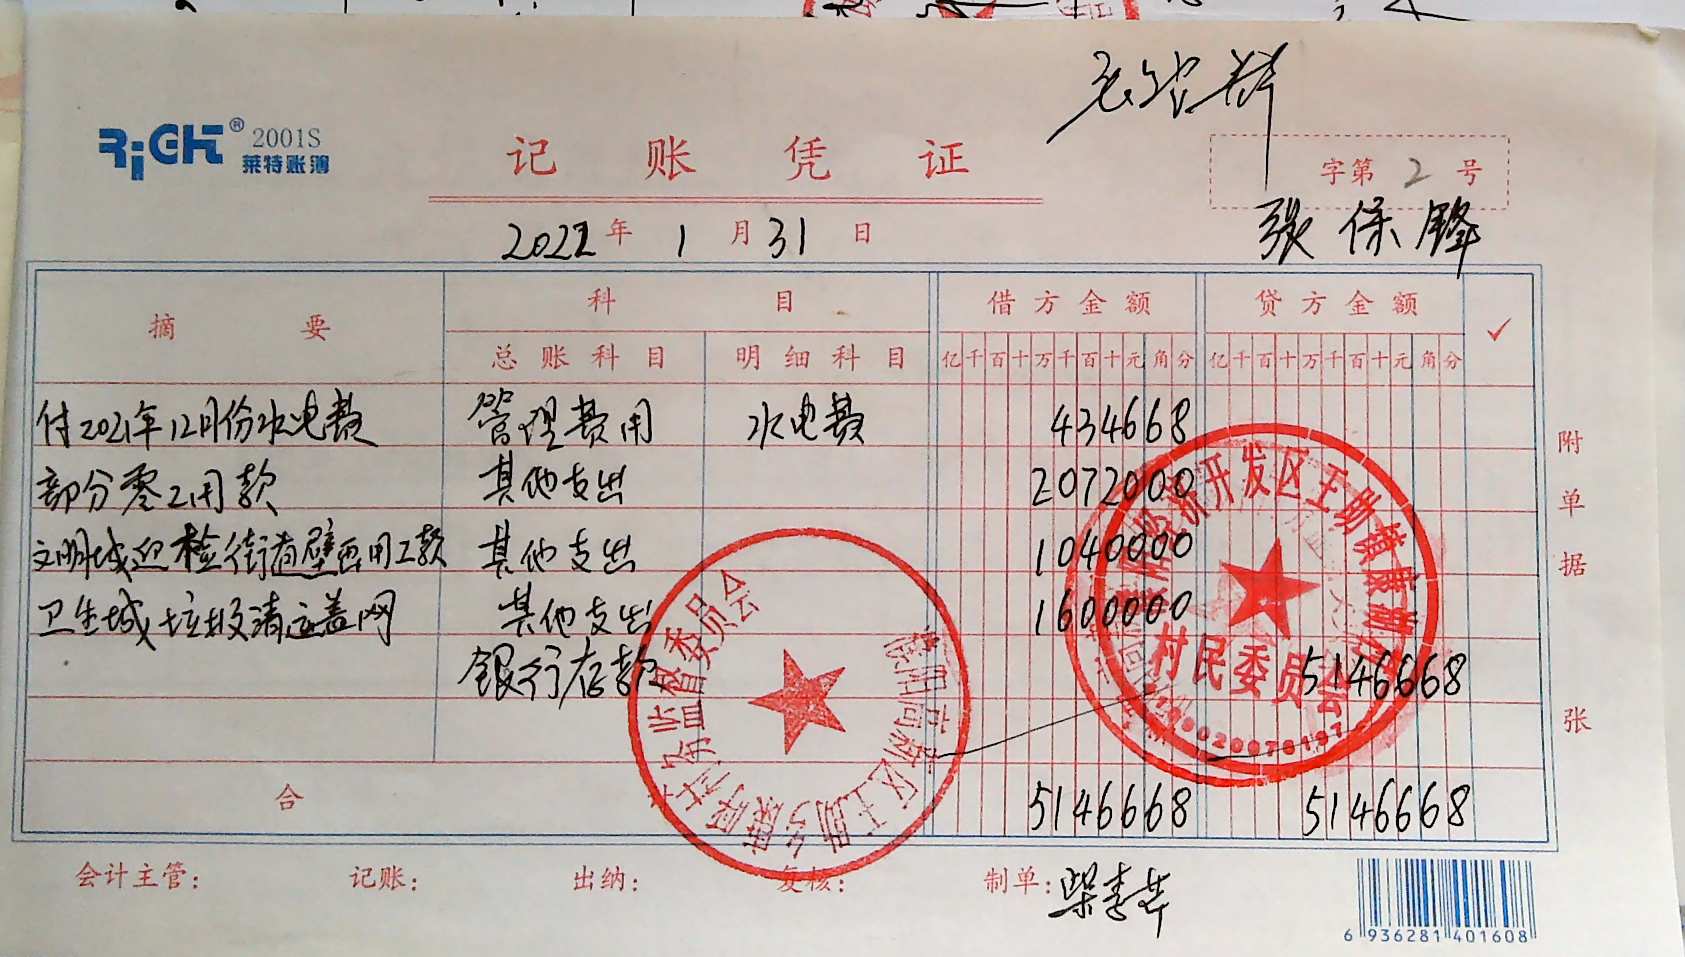 RiGHT® 2001S
莱特账簿
记账凭证
字第2号
张保锋
2022年1月31日
摘要 科目 借方金额 贷方金额 ✓
总账科目 明细科目 亿千百十万千百十元角分 亿千百十万千百十元角分
付2021年12月份水电费 管理费用 水电费 434668
部分零工用款 其他支出 2072000
文明城迎检街道壁画用工款 其他支出 1040000
卫生城垃圾清运盖网 其他支出 1600000
银行存款 5146668
合 5146668 5146668
附单据 张
村务监督委员会
村民委员会
会计主管: 记账: 出纳: 复核: 制单:
6 936281 401608